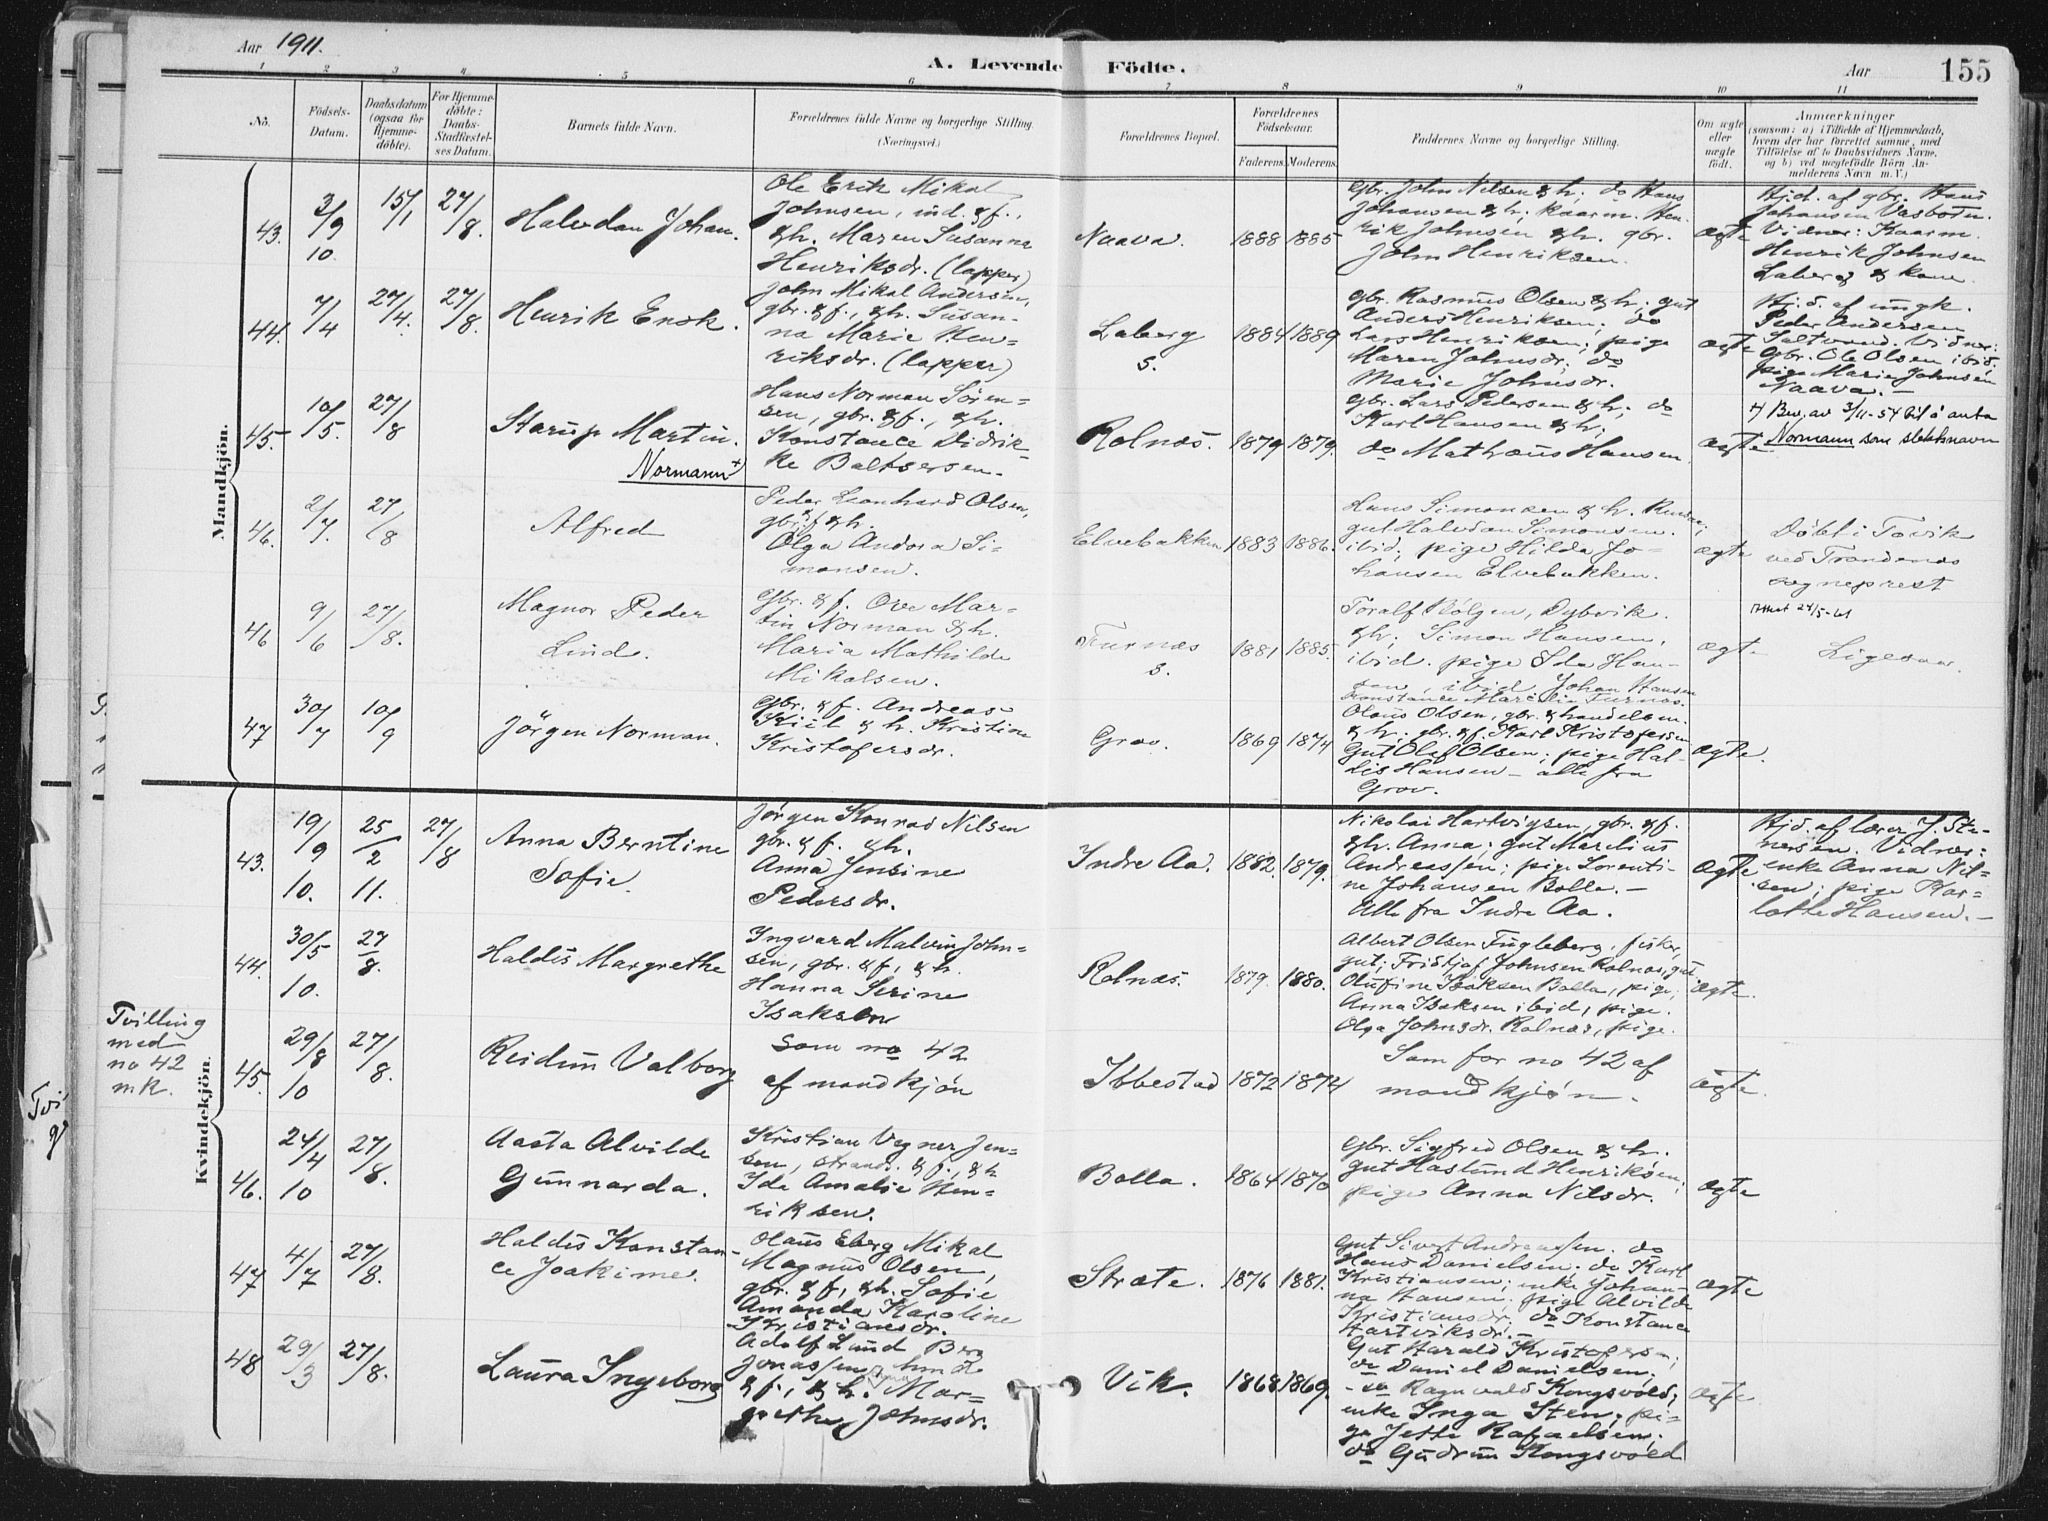 Aar 1911.
A. Levende Födte.
Aar
155
1 2 3 4 5 6 7 8 9 10 11
No.
Födsels-Datum.
Daabsdatum (ogsaa for Hjemme-döbte).
For Hjemme-döbte: Daabs-Stadfæstel-ses Datum.
Barnets fulde Navn.
Forældrenes fulde Navne og borgerlige Stilling. (Næringsvei.)
Forældrenes Bopæl.
Forældrenes Födselsaar.
Faderens. Moderens.
Faddernes Navne og borgerlige Stilling.
Om ægte eller uægte födt.
Anmærkninger
(saasom: a) i Tilfælde af Hjemmedaab,
hvem der har forrettet samme, med
Tilföielse af to Daabsvidners Navne,
og b) ved uegtefödte Börn An-
melderens Navn m. V.)
Mandkjön.
43.
3/9 10.
15/1
27/8.
Halvdan Johan.
Ole Erik Mikal
Johnsen, ind. & f.,
& h. Maren Susanna
Henriksdr. (lapper)
Naava.
1888
1885
Gbr. John Nilsen & h; do Hans
Johansen & h; kaarm. Hen-
rik Johnsen & h. gbr.
John Henriksen.
ægte
Hjd. af gbr. Hans
Johansen Vasbotn.
Vidner: Kaarm.
Henrik Johnsen
Laberg & kone.
44.
7/4
27/4.
27/8.
Henrik Enok.
John Mikal Andersen,
gbr. & f., & h. Susan-
na Marie Hen-
riksdr. (lapper)
Laberg
s.
1884
1889
Gbr. Rasmus Olsen & h; gut
Anders Henriksen; do
Lars Henriksen; pige
Maren Johnsdr; do
Marie Johnsdr.
ægte
Hjd. af ungk.
Peder Andersen
Saltvand. Vidner:
Gbr. Ole Olsen ibid.
pige Marie Johnsen
Naava. –
45.
10/5.
27/8
Starup Martin.
Normann +
Hans Norman Sören-
sen, gbr. & f., & h.
Konstance Didrik-
ke Baltsersen.
Rolnæs.
1879
1879.
Gbr. Lars Pedersen & h; do
Karl Hansen & h;
do Mathæus Hansen.
ægte
+) Bev. av 3/11-54 til å anta
Normann som slektnavn
46.
2/7.
27/8
Alfred
Peder Leonhard Olsen,
gbr. & f & h.
Olga Andora Si-
monsen.
Elvebakken
1883
1886.
Hans Simonsen & h.
gut Halvdan Simonsen.
ibid; pige Hilda Jo-
hansen Elvebakken.
ægte
Döbt i Tovik
ved Trondenes
sogneprest
Attest 24/5-61
46
9/6
27/8.
Magnor Peder
Lind.
Gbr. & f. Ove Mar-
tin Norman & h.
Maria Mathilde
Mikalsen.
Furnes
s.
1881
1885.
Toralf Bølgen, Dybvik.
& h; Simon Hansen,
ibid. pige Ida Han-
sen, ibid Johan Hansen
Konstance Marie Lin Furnæs.
ægte
Ligesaa.
47
30/7
10/9
Jörgen Norman.
Gbr. & f. Andreas
Kiil & h. Kristine
Kristofersdr.
Grov.
1869
1874
Olaus Olsen, gbr. & handelsm.
& h; gbr. & f. Karl Kristofersen
Gut Olaf Olsen; pige Hal-
dis Hansen – alle fra
Grov.
ægte.
Kvindekjön.
43.
19/9 10.
25/2 11.
27/8
Anna Berntine
Sofie.
Jörgen Konrad Nilsen
gbr. & f. & h.
Anna Jensine
Pedersdr.
Indre Aa.
1882
1879.
Nikolai Hartvigsen, gbr. & f.
& h. Anna; gut Marelius
Andreassen; pige Lorenti-
ne Johansen Bolla. –
Alle fra Indre Aa.
ægte
Hjd. af lærer J. Ste-
nersen. Vidner:
enke Anna Nil-
sen; pige Kar-
lotte Hansen. –
44.
30/5 10.
27/8.
Haldis Margrethe
Ingvard Malvin John-
sen, gbr. & f, & h.
Hanna Serine
Isaksen
Rolnæs.
1879.
1880.
Albert Olsen Fugleberg, fisker,
gut; Fristjof Johnsen Rolnæs, gut
Olufine Isaksen Bolla, pige;
Anna Isaksen ibid, pige.
Olga Johnsdr. Rolnæs, pige.
ægte.
Tvilling
med
no 42
mk.
45.
29/8 10
27/8.
Reidun Valborg
Som no 42
af mandkjön
Ibbestad
1872
1874
Som for no 42 af
mandkjön.
ægte.
46.
24/4 10
27/8.
Aasta Alvilde
Gunnarda.
Kristian Vagner Jen-
sen, strands. & f., & h
Ida Amalie Hen-
riksen.
Bolla.
1864
1870
Gbr. Sigfred Olsen & h.
gut Haslund Henriksen;
pige Anna Nilsdr.
ægte
47
4/7
27/8.
Haldis Konstan-
ce Joakime.
Olaus Eberg Mikal
Magnus Olsen,
gbr. & f, & h. Sofie
Amanda Karoline
Kristiansdr.
Stræte.
1876
1881.
Gut Sivert Andreassen. do
Hans Danielsen. do Karl
Kristiansen; enke Johan-
na Hansen; pige Alvilde
Kristiansdr. do Konstance
Hartviksdr. –
ægte
48
29/3
27/8.
Laura Ingeborg
Adolf Lund Berg
Jonassen,
& f., & h. Mar-
grethe Johnsdr.
Vik.
1868
1869.
Gut Harald Kristofersen;
do Daniel Danielsen.
– do Ragnvald Kongsvold;
enke Inga Sten; pi-
ge Jette Rafaelsen;
do Gudrun Kongsvold
ægte